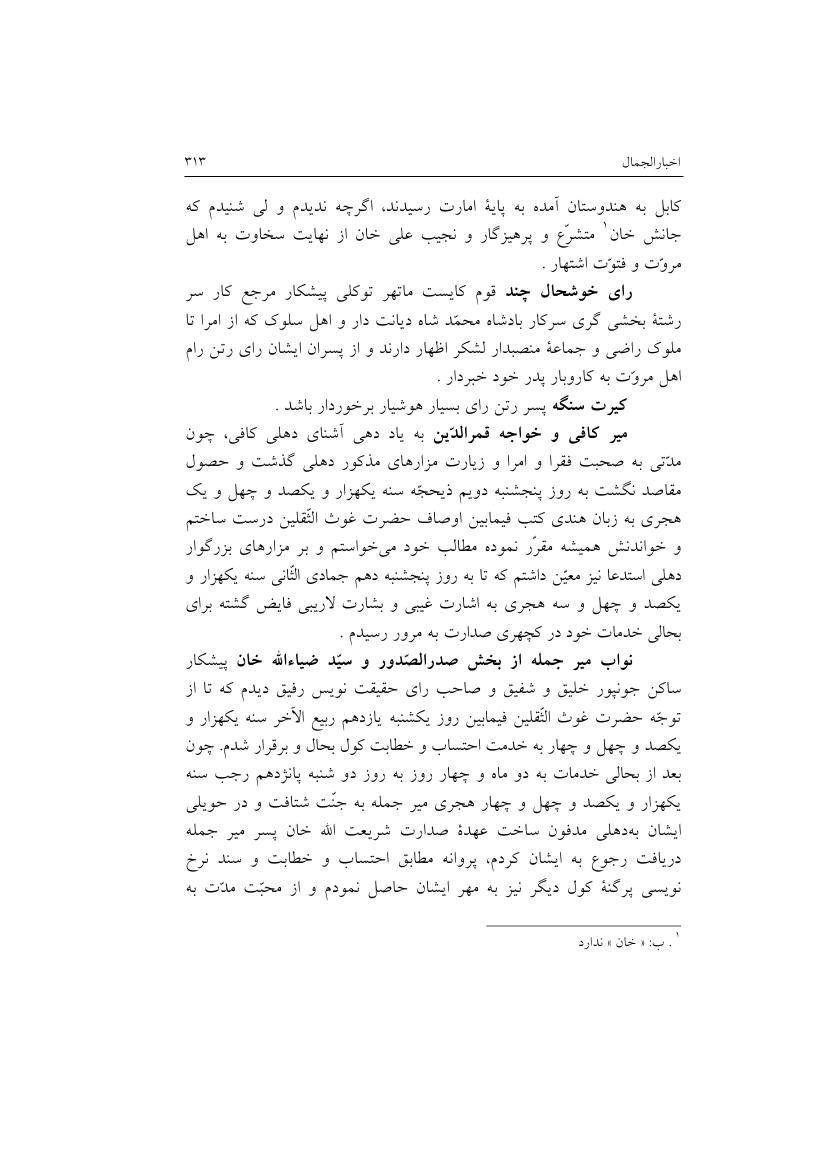 اخبارالجمال ۳۱۳
کابل به هندوستان آمده به پایۀ امارت رسیدند، اگرچه ندیدم و لی شنیدم که
جانش خان۱ متشرّع و پرهیزگار و نجیب علی خان از نهایت سخاوت به اهل
مروّت و فتوّت اشتهار .
رای خوشحال چند قوم کایست ماتهر توکلی پیشکار مرجع کار سر
رشتۀ بخشی گری سرکار بادشاه محمّد شاه دیانت دار و اهل سلوک که از امرا تا
ملوک راضی و جماعۀ منصبدار لشکر اظهار دارند و از پسران ایشان رای رتن رام
اهل مروّت به کاروبار پدر خود خبردار .
کیرت سنگه پسر رتن رای بسیار هوشیار برخوردار باشد .
میر کافی و خواجه قمرالدّین به یاد دهی آشنای دهلی کافی، چون
مدّتی به صحبت فقرا و امرا و زیارت مزارهای مذکور دهلی گذشت و حصول
مقاصد نگشت به روز پنجشنبه دویم ذیحجّه سنه یکهزار و یکصد و چهل و یک
هجری به زبان هندی کتب فیمابین اوصاف حضرت غوث الثّقلین درست ساختم
و خواندنش همیشه مقرّر نموده مطالب خود می‌خواستم و بر مزارهای بزرگوار
دهلی استدعا نیز معیّن داشتم که تا به روز پنجشنبه دهم جمادی الثّانی سنه یکهزار و
یکصد و چهل و سه هجری به اشارت غیبی و بشارت لاریبی فایض گشته برای
بحالی خدمات خود در کچهری صدارت به مرور رسیدم .
نواب میر جمله از بخش صدرالصّدور و سیّد ضیاءالله خان پیشکار
ساکن جونپور خلیق و شفیق و صاحب رای حقیقت نویس رفیق دیدم که تا از
توجّه حضرت غوث الثّقلین فیمابین روز یکشنبه یازدهم ربیع الآخر سنه یکهزار و
یکصد و چهل و چهار به خدمت احتساب و خطابت کول بحال و برقرار شدم. چون
بعد از بحالی خدمات به دو ماه و چهار روز به روز دو شنبه پانژدهم رجب سنه
یکهزار و یکصد و چهل و چهار هجری میر جمله به جنّت شتافت و در حویلی
ایشان به‌دهلی مدفون ساخت عهدۀ صدارت شریعت الله خان پسر میر جمله
دریافت رجوع به ایشان کردم، پروانه مطابق احتساب و خطابت و سند نرخ
نویسی پرگنۀ کول دیگر نیز به مهر ایشان حاصل نمودم و از محبّت مدّت به
۱ . ب: « خان » ندارد